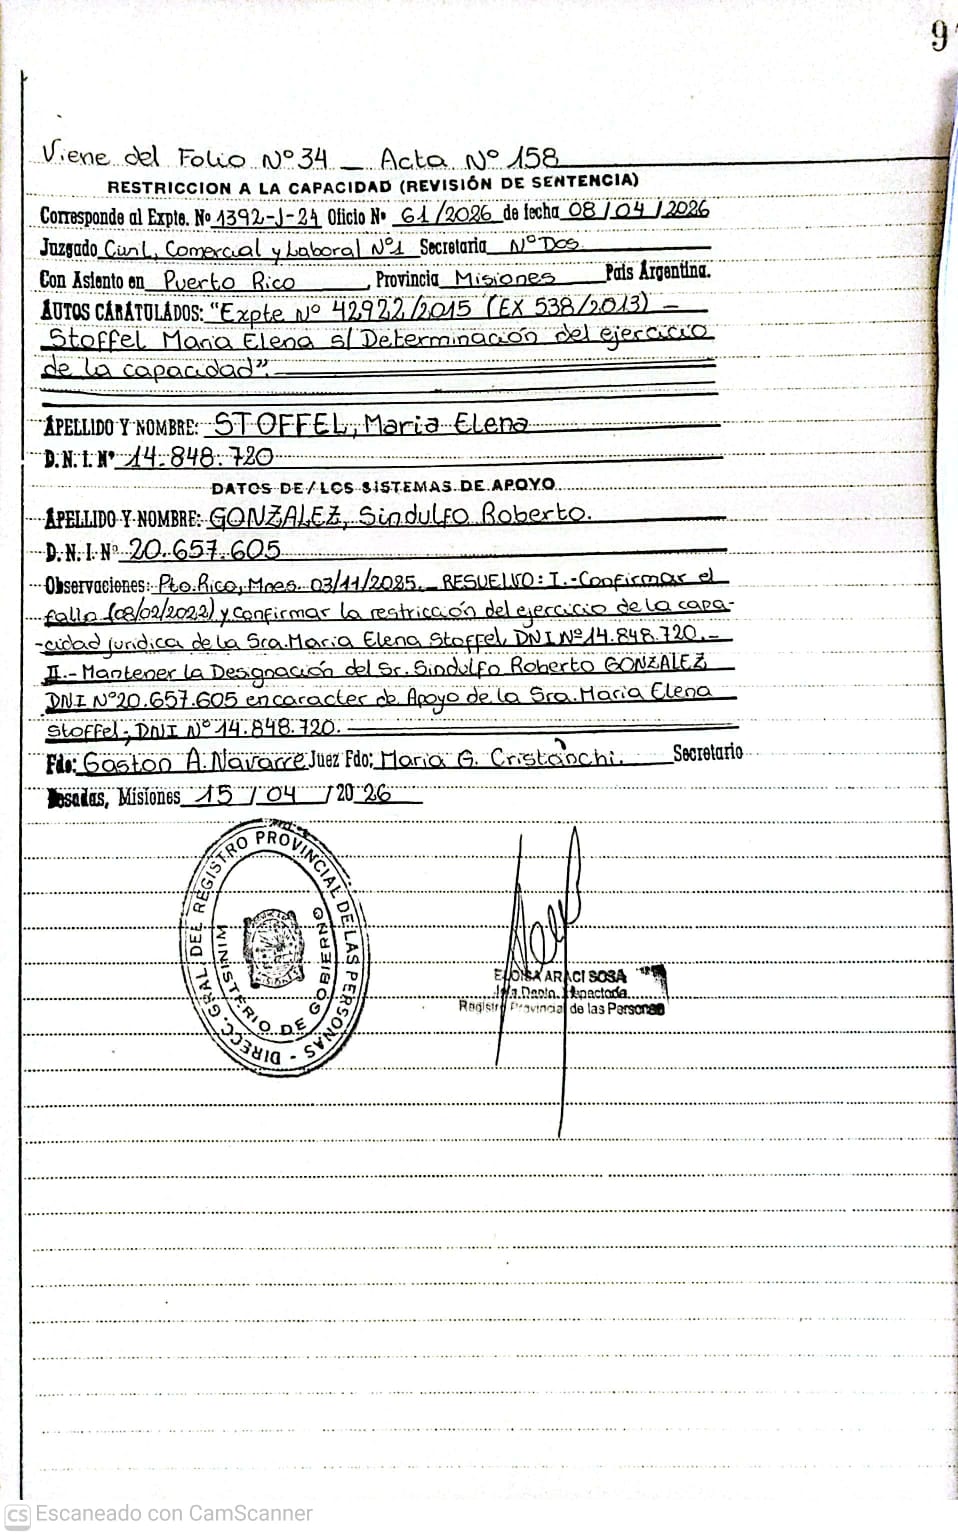 9
Viene del Folio Nº 34 _ Acta Nº 158
RESTRICCION A LA CAPACIDAD (REVISIÓN DE SENTENCIA)
Corresponde al Expte. Nº 1392-J-24 Oficio Nº 61/2026 de fecha 08/04/2026
Juzgado Civil, Comercial y Laboral Nº1 Secretaria Nº Dos
Con Asiento en Puerto Rico, Provincia Misiones Pais Argentina.
AUTOS CARATULADOS: "Expte Nº 42922/2015 (EX 538/2013) –
Stoffel Maria Elena s/ Determinación del ejercicio
de la capacidad".
APELLIDO Y NOMBRE: STOFFEL, Maria Elena
D.N.I. Nº 14.848.720
DATOS DE/LOS SISTEMAS DE APOYO
APELLIDO Y NOMBRE: GONZALEZ, Sindulfo Roberto.
D.N.I. Nº 20.657.605
Observaciones: Pto. Rico, Mnes. 03/11/2025. _ RESUELVO: I.- Confirmar el
fallo (08/02/2022) y Confirmar la restricción del ejercicio de la capa-
-cidad jurídica de la Sra. Maria Elena Stoffel, DNI Nº 14.848.720.-
II.- Mantener la Designación del Sr. Sindulfo Roberto GONZALEZ
DNI Nº 20.657.605 en caracter de Apoyo de la Sra. Maria Elena
Stoffel, DNI Nº 14.848.720.
Fdo: Gaston A. Navarre Juez Fdo: Maria G. Cristanchi. Secretario
Posadas, Misiones 15/04/2026
DIRECC. GRAL. DEL REGISTRO PROVINCIAL DE LAS PERSONAS -
MINISTERIO DE GOBIERNO
ELOISA ARACI SOSA
Jefa Depto. Inspectoria
Registro Provincial de las Personas
CS Escaneado con CamScanner